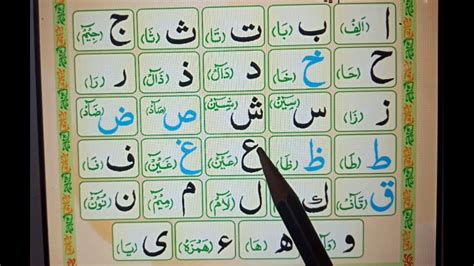 ا (اَلِفْ) ب (بَا) ت (تَا) ث (ثَا) ج (جِيْمْ)
ح (حَا) خ (خَا) د (دَالْ) ذ (ذَالْ) ر (رَا)
ز (زَا) س (سِيْنْ) ش (شِيْنْ) ص (صَادْ) ض (ضَادْ)
ط (طَا) ظ (ظَا) ع (عَيْنْ) غ (غَيْنْ) ف (فَا)
ق (قَافْ) ك ل (لَامْ) م (مِيْمْ) ن (نُوْنْ)
و (وَاوْ) ھ (هَا) ء (هَمْزَهْ) ی (يَا)